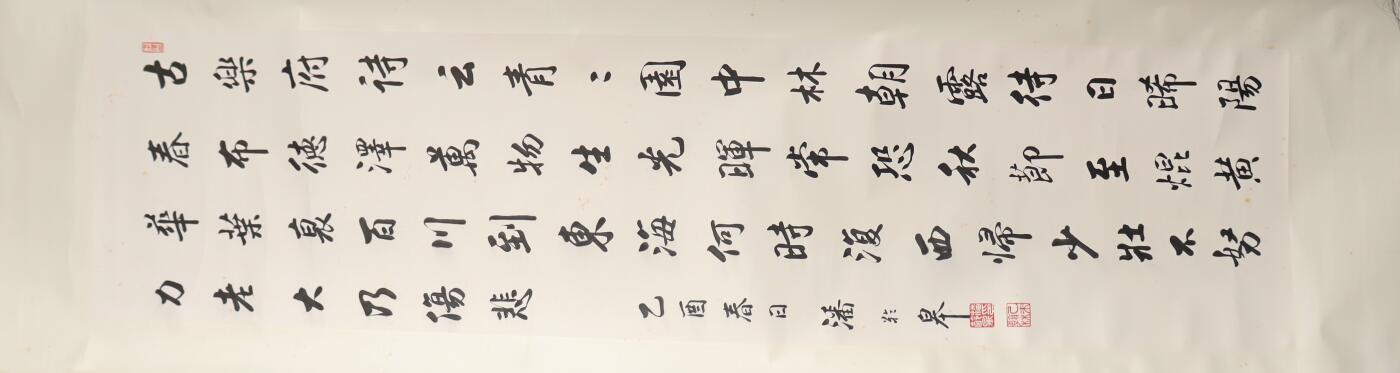 古樂府待云青〻園中林朝露待日晞陽
春布德澤萬物生光暉常恐秋節至焜黄
華葉衰百川到東海何時復西歸少壯不努
力老大乃傷悲 乙酉春日 潘 皋